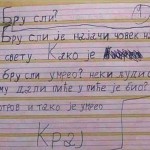 Бру сли? 1
Бру сли је најачи човек на
свету Како је
бру сли умрео? неки људи
му дали пиће у пиће је био?
отров и тако је умрео
Крај